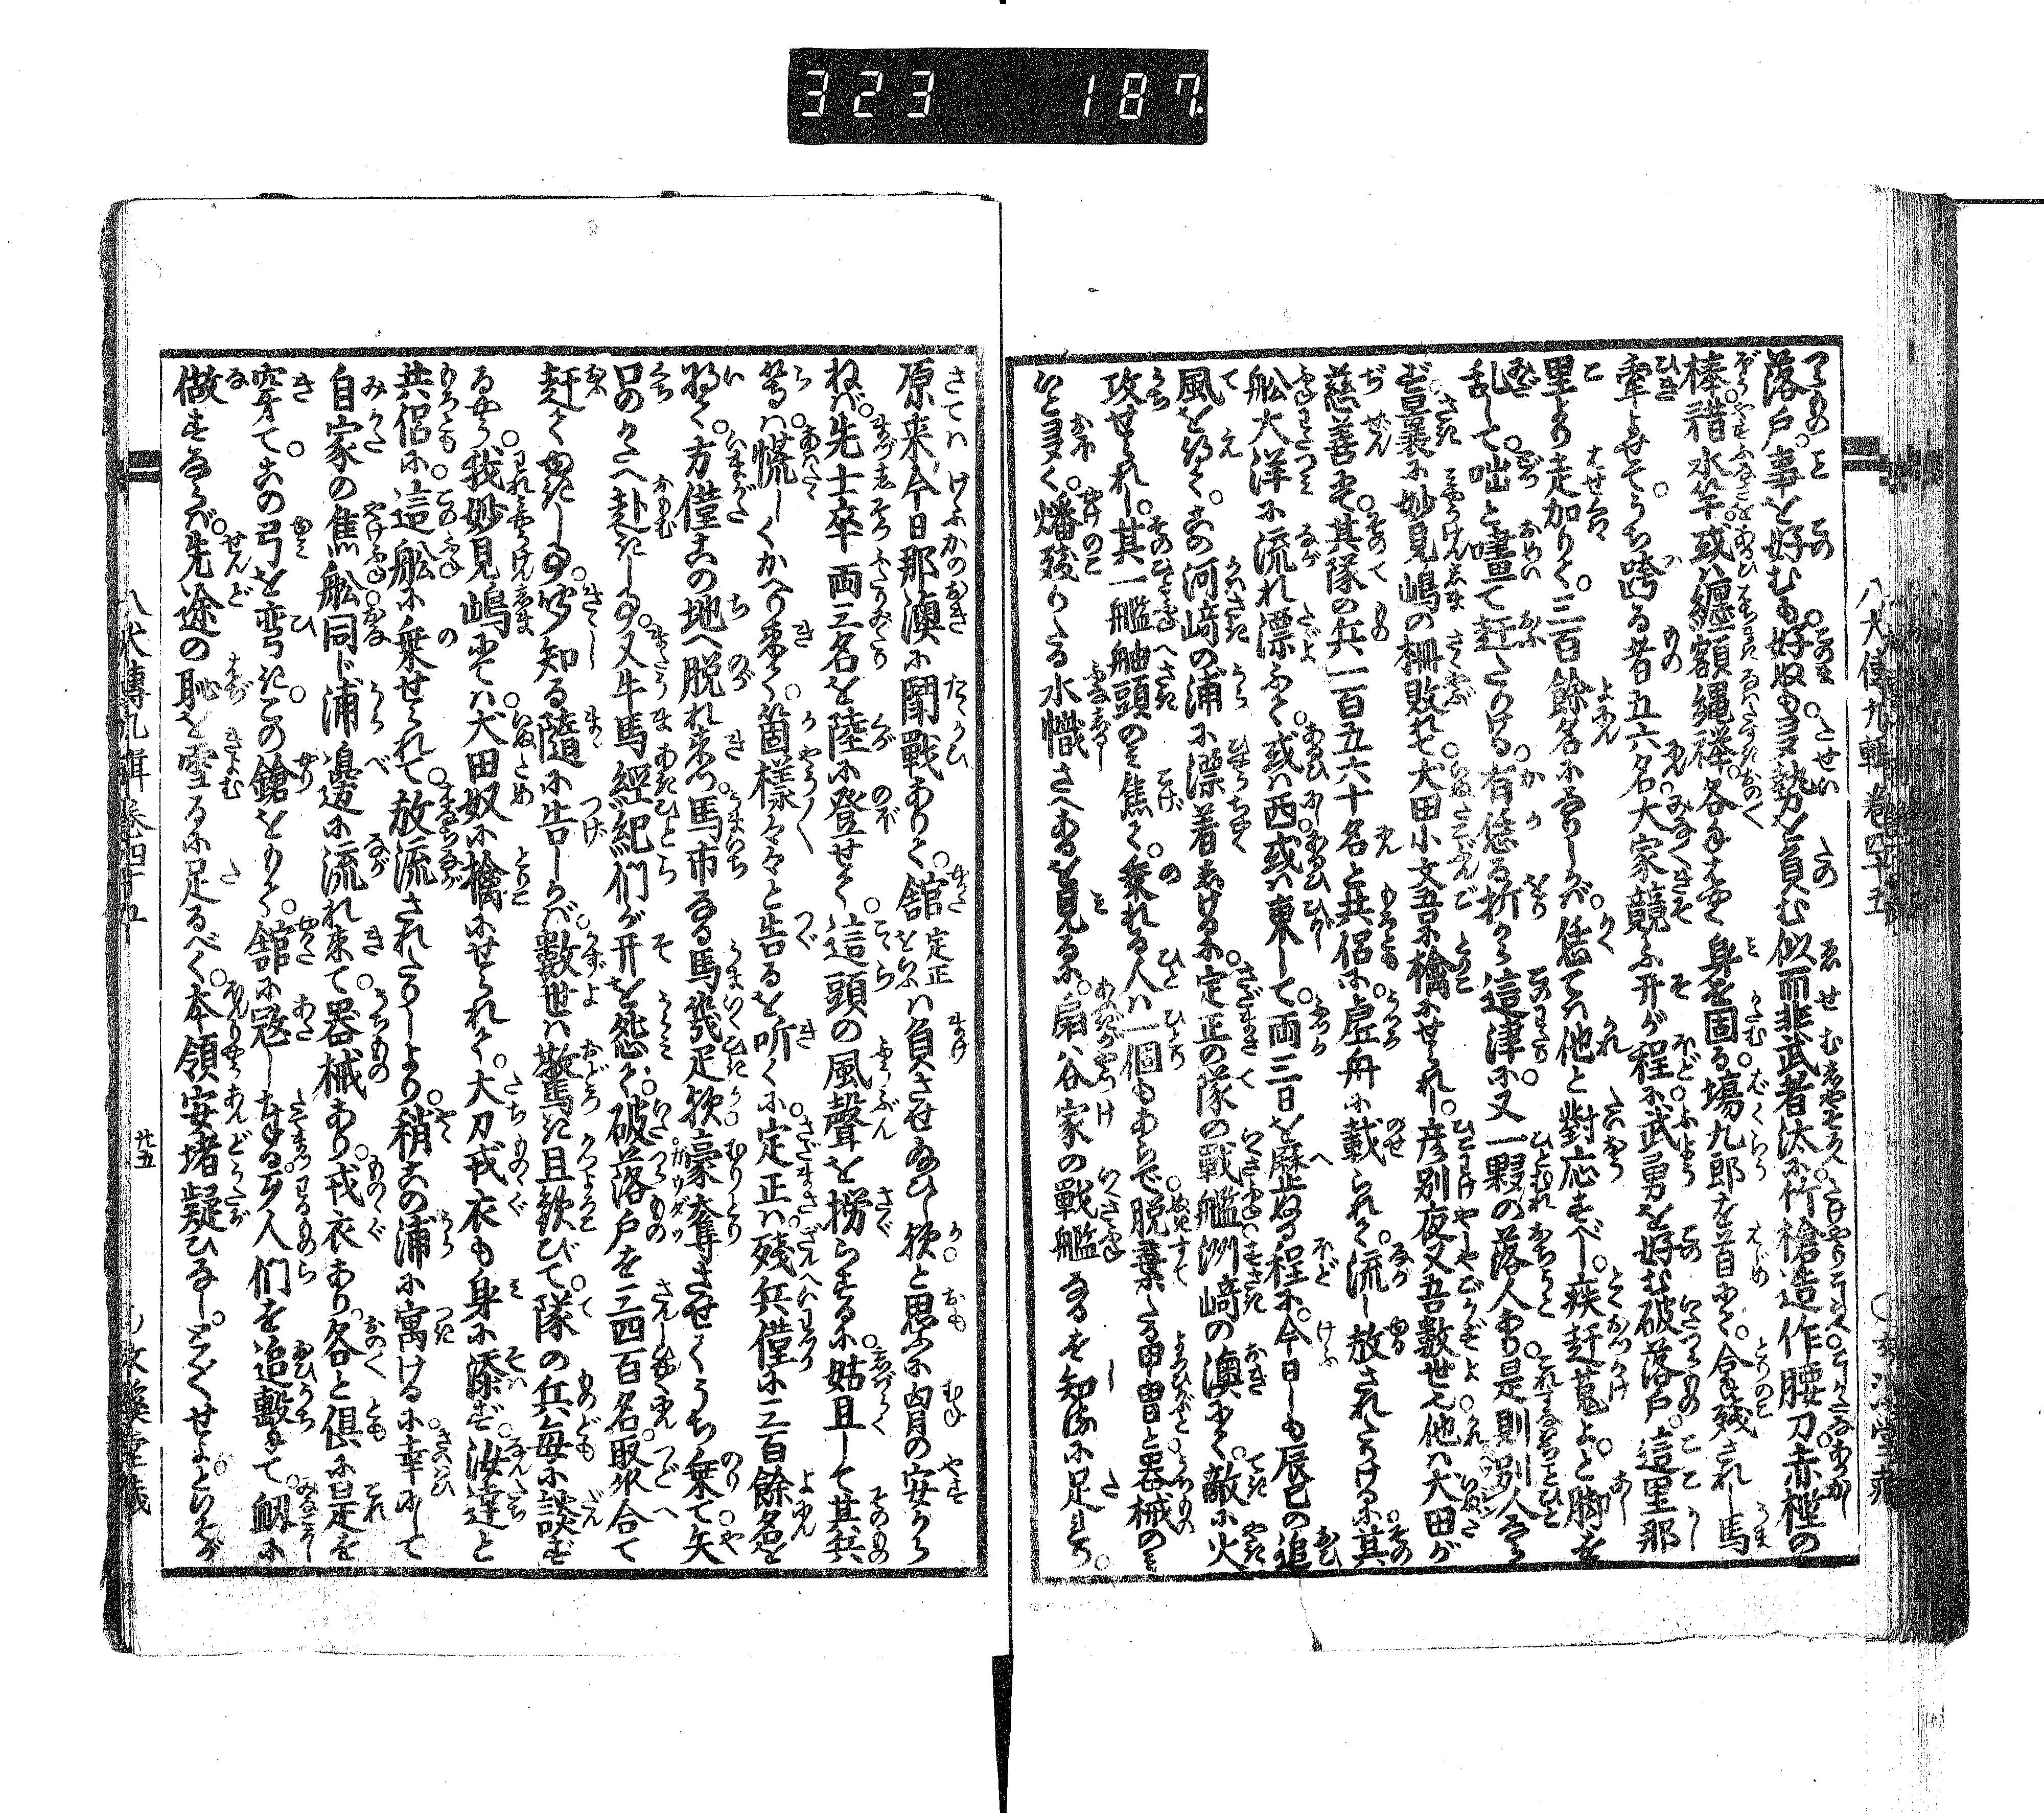 323 187
八犬傳九輯 巻四十五
落戸事を好むも好ぬも多勢を負む似而非武者汰に竹槍造作腰刀赤樫の
棒稭水竿或ハ纏額縄襷各手々に身を固る塲九郎を首にて合残されし馬
牽よせてうち跨る者五六名大家競ふ程に武勇を好む破落戸這里那
里より走加りて三百餘名になりしかバ恁てハ他と對応すべし疾赶蒐よと脚を
乱して咄と嚷て赶たりける有恁る折から這津に又一夥の落人あり是則別人な
らず曩に妙見嶋の柵敗れて犬田小文吾に檎にせられし彦別夜叉吾数世を他ハ犬田が
慈善にて其隊の兵一百五六十名と共侶に虚舟に載られて流し放されたりけるに其
舩大洋に流れ漂ふて或ハ西或ハ東して両三日を歴ぬる程に今日しも辰巳の追
風を得てこの河﨑の浦に漂着しけるに定正の隊の戰艦洲﨑の澳にて敵に火
攻せられし其一艦舳頭のミ焦て乗れる人ハ一個もあらで脱棄たる甲冑と器械のミ
いと多く燔残りたる水幟さへあるを見るに扇谷家の戰艦なるを知るに足れり
原来今日那澳に鬪戰ありて舘定正をいふハ負させ給ひし歟と思ふに胷の安から
ねバ先士卒両三名を陸に登せて這頭の風聲を撈らするに姑且して其兵
等ハ慌しくかへり来て箇様々々と告るを听くに定正ハ残兵僅に二百餘名を
将て方僅この地へ脱れ来つ馬市なる馬幾疋歟豪奪させてうち乗て矢
口のかたへ赴きし事又牛馬經紀们が开を怨て破落戸を三四百名取聚合て
赶てゆきし事聞知る隨に告しかバ数世ハ驚き且歓びて隊の兵毎に談ず
るやう我妙見嶋にてハ犬田奴に檎にせられて大刀戎衣も身に添ず汝達と
共侶に這舩に乗せられて放流されたりしより稍この浦に寓けるに幸にして
自家の焦舩同じ浦邊に流れ来て器械あり戎衣あり各と倶に是を
穿てこの弓を弯きこの鎗をもて舘に冦しまつる歹人们を追擊て衂に
做すならバ先途の恥を雪るに足るべく本領安堵疑ひなしとくせよといそが
八犬傳九輯巻四十五
廿五